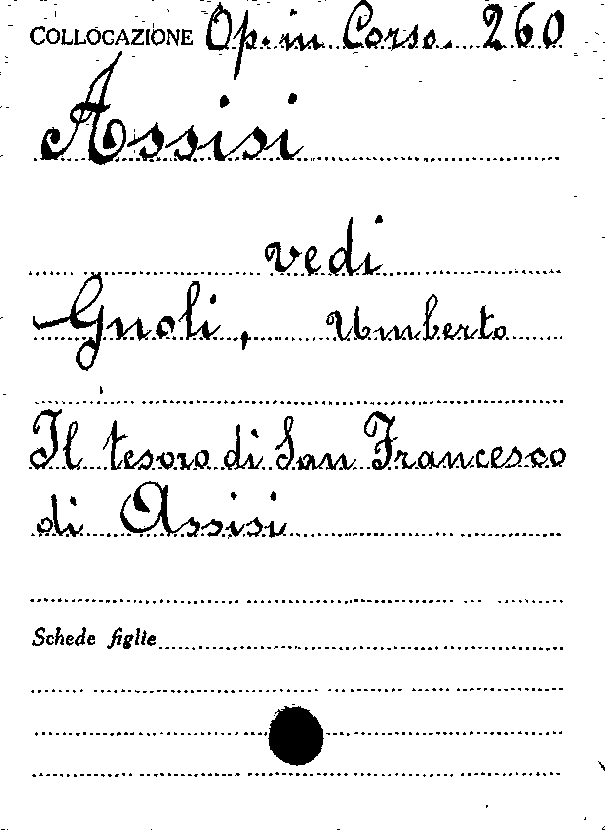 COLLOCAZIONE Op. in Corso. 260
Assisi
vedi
Gnoli, Umberto
Il tesoro di San Francesco
di Assisi
Schede figlie